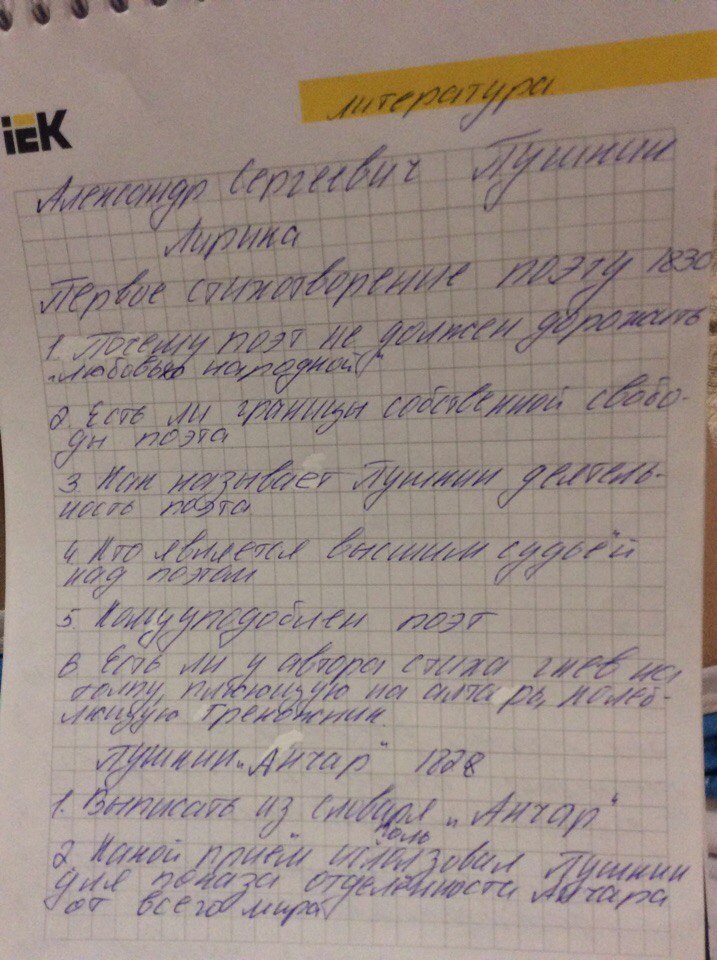 литература
iEK
Александр Сергеевич Пушкин
Лирика
Первое стихотворение поэту 1830
1. Почему поэт не должен дорожить
"любовью народной"
2. Есть ли границы собственной свобо-
ды поэта
3 Как называет Пушкин деятель-
ность поэта
4. Кто является высшим судьёй
над поэтом
5. Кому уподоблен поэт
6 Есть ли у автора стиха гнев на
толпу, плюющую на алтарь, колеб-
лющую треножник
Пушкин "Анчар" 1828
1. Выписать из словаря "Анчар"
2. Какой приём использовал Пушкин
для показа отделённости Анчара
от всего мира